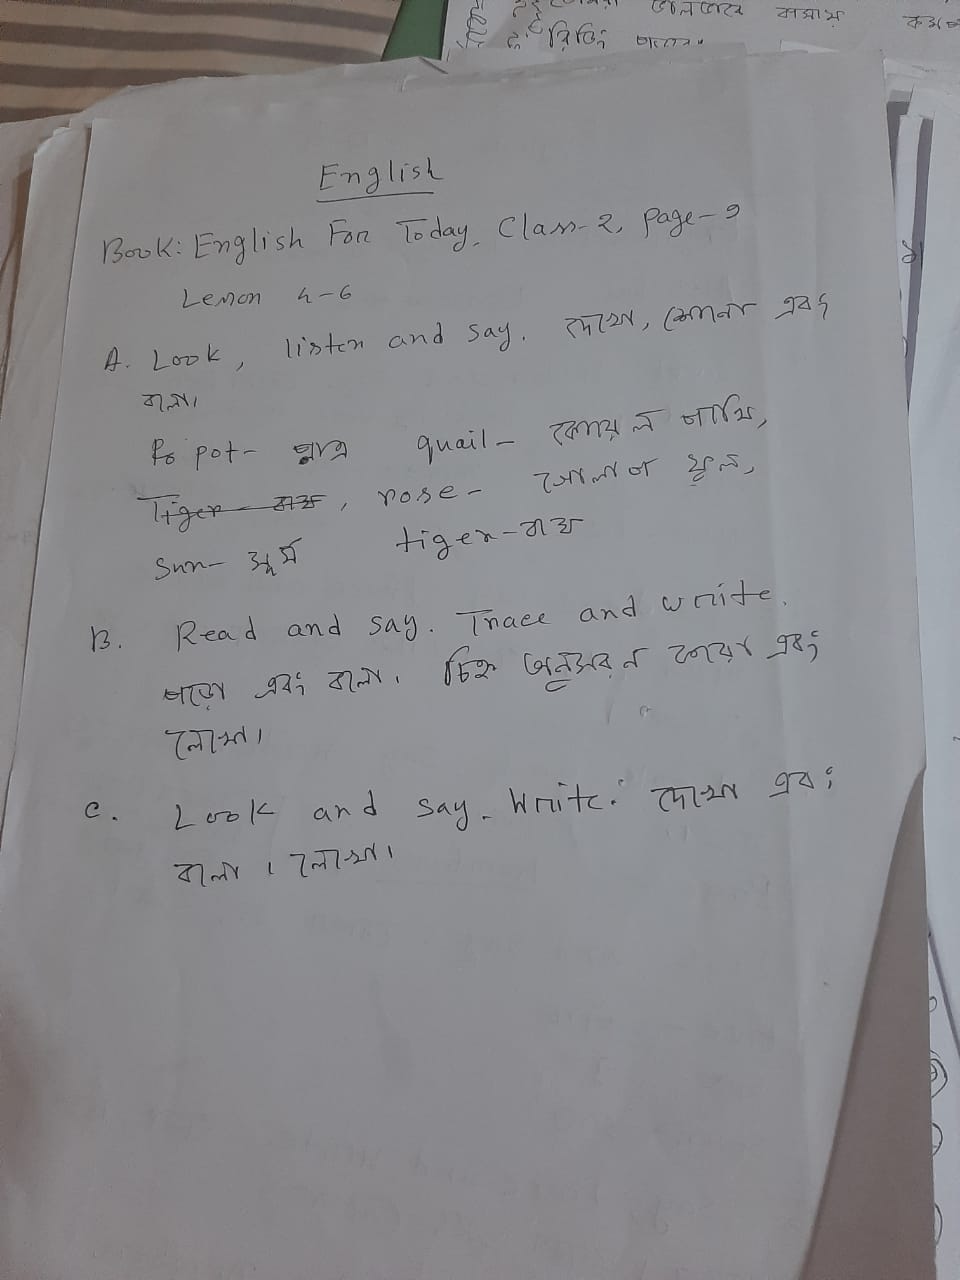 রিডিং
English
Book: English For Today, Class-2, page-9
Lesson 4-6
A. Look, listen and say. দেখো, শোনো এবং
বলো।
pot- পাত্র quail- কোয়েল পাখি,
Tiger - বাঘ, rose- গোলাপ ফুল,
Sun- সূর্য tiger-বাঘ
B. Read and say. Trace and write.
পড়ো এবং বলো। চিহ্ন অনুসরন করো এবং
লেখো।
C. Look and say. Write. দেখো এবং
বলো। লেখো।